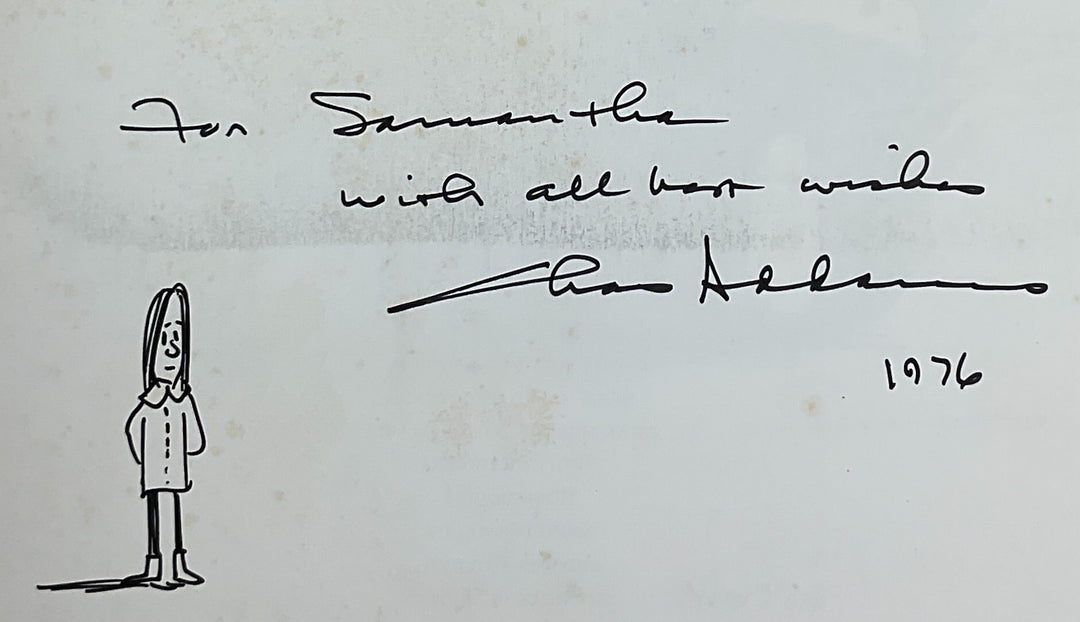 For Samantha
with all best wishes
Chas Addams
1976